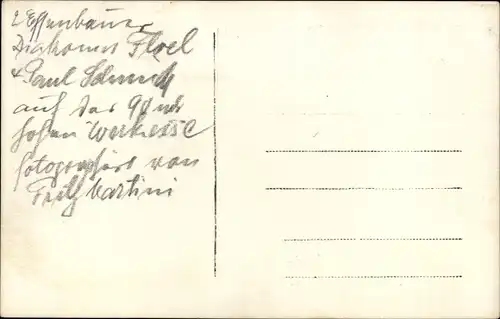 2 Essenbauer
Diakomus Floel
+ Paul Schmidt
auf der 90 m
hohen Werkesse
fotographiert von
Fritz Martini